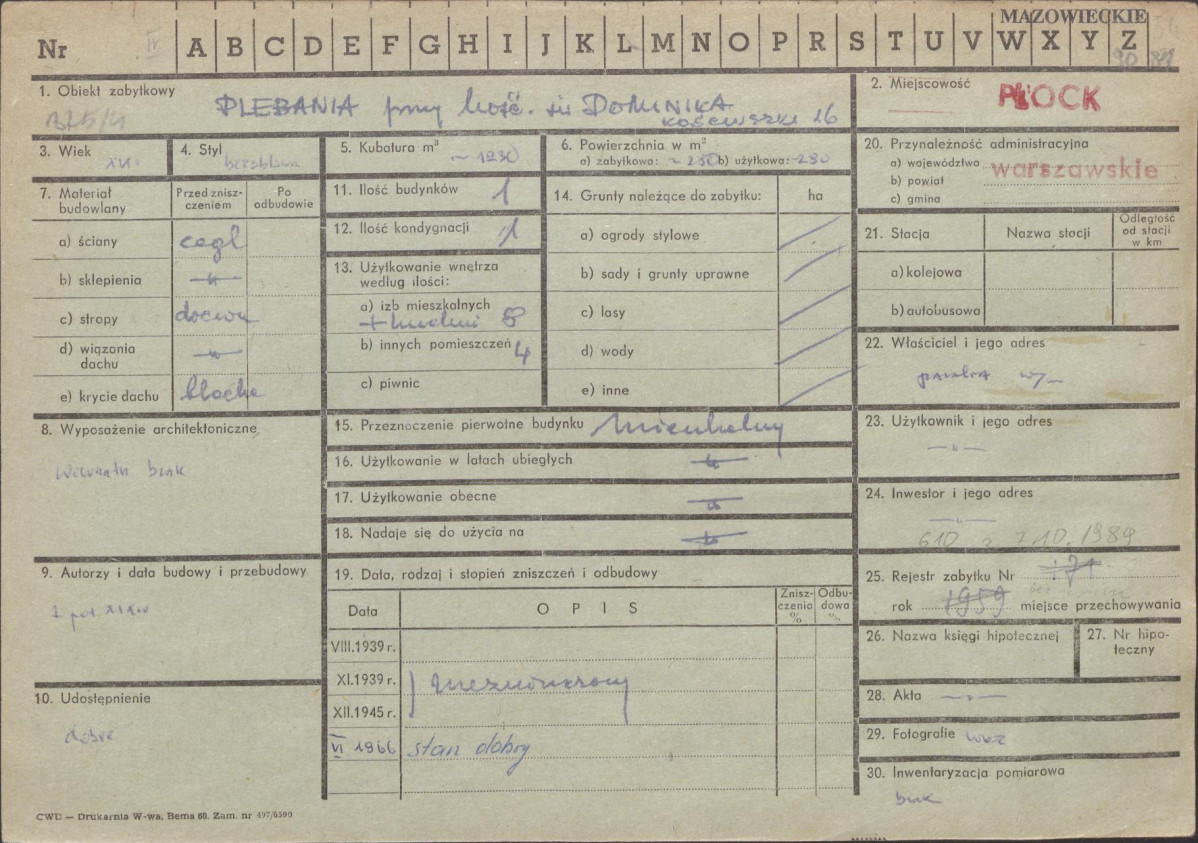 MAZOWIECKIE
Nr IV A B C D E F G H I J K L M N O P R S T U V W X Y Z
1. Obiekt zabytkowy
PLEBANIA przy kość. św DOMINIKA
KOŚCIUSZKI 16
2. Miejscowość PŁOCK
3. Wiek
4. Styl bezstylowa
5. Kubatura m³ ~ 1230
6. Powierzchnia w m²
a) zabytkowa: ~ 280 b) użytkowa: ~280
20. Przynależność administracyjna
a) województwo warszawskie
b) powiat
c) gmina
7. Materiał budowlany
Przed zniszczeniem
Po odbudowie
a) ściany cegł
b) sklepienia —"—
c) stropy drewn
d) wiązania dachu —"—
e) krycie dachu blacha
11. Ilość budynków 1
12. Ilość kondygnacji 1
13. Użytkowanie wnętrza według ilości:
a) izb mieszkalnych
+ kuchni 8
b) innych pomieszczeń 4
c) piwnic
14. Grunty należące do zabytku: ha
a) ogrody stylowe /
b) sady i grunty uprawne /
c) lasy /
d) wody /
e) inne /
21. Stacja
Nazwa stacji
Odległość od stacji w km
a) kolejowa
b) autobusowa
22. Właściciel i jego adres
parafia
8. Wyposażenie architektoniczne
wewnątrz brak
15. Przeznaczenie pierwotne budynku mieszkalny
16. Użytkowanie w latach ubiegłych —"—
17. Użytkowanie obecne —"—
18. Nadaje się do użycia na —"—
23. Użytkownik i jego adres
—"—
24. Inwestor i jego adres
—"—
610 z 7.10.1989
9. Autorzy i data budowy i przebudowy
19. Data, rodzaj i stopień zniszczeń i odbudowy
Data
OPIS
Zniszczenia %
Odbudowa %
VIII.1939 r.
XI.1939 r.
XII.1945 r.
niezniszczony
VI 1966 stan dobry
25. Rejestr zabytku Nr 171
rok 1959 miejsce przechowywania
26. Nazwa księgi hipotecznej
27. Nr hipoteczny
10. Udostępnienie
dobre
28. Akta —"—
29. Fotografie WKZ
30. Inwentaryzacja pomiarowa
brak
CWD — Drukarnia W-wa, Bema 60. Zam. nr 497/6500